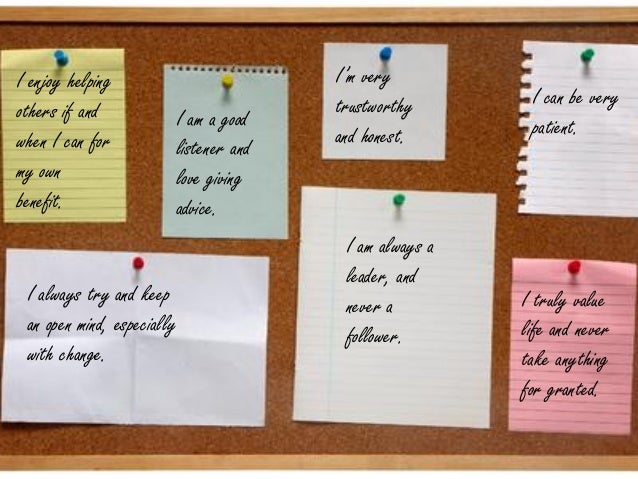 I enjoy helping
others if and
when I can for
my own
benefit.
I am a good
listener and
love giving
advice.
I'm very
trustworthy
and honest.
I can be very
patient.
I always try and keep
an open mind, especially
with change.
I am always a
leader, and
never a
follower.
I truly value
life and never
take anything
for granted.